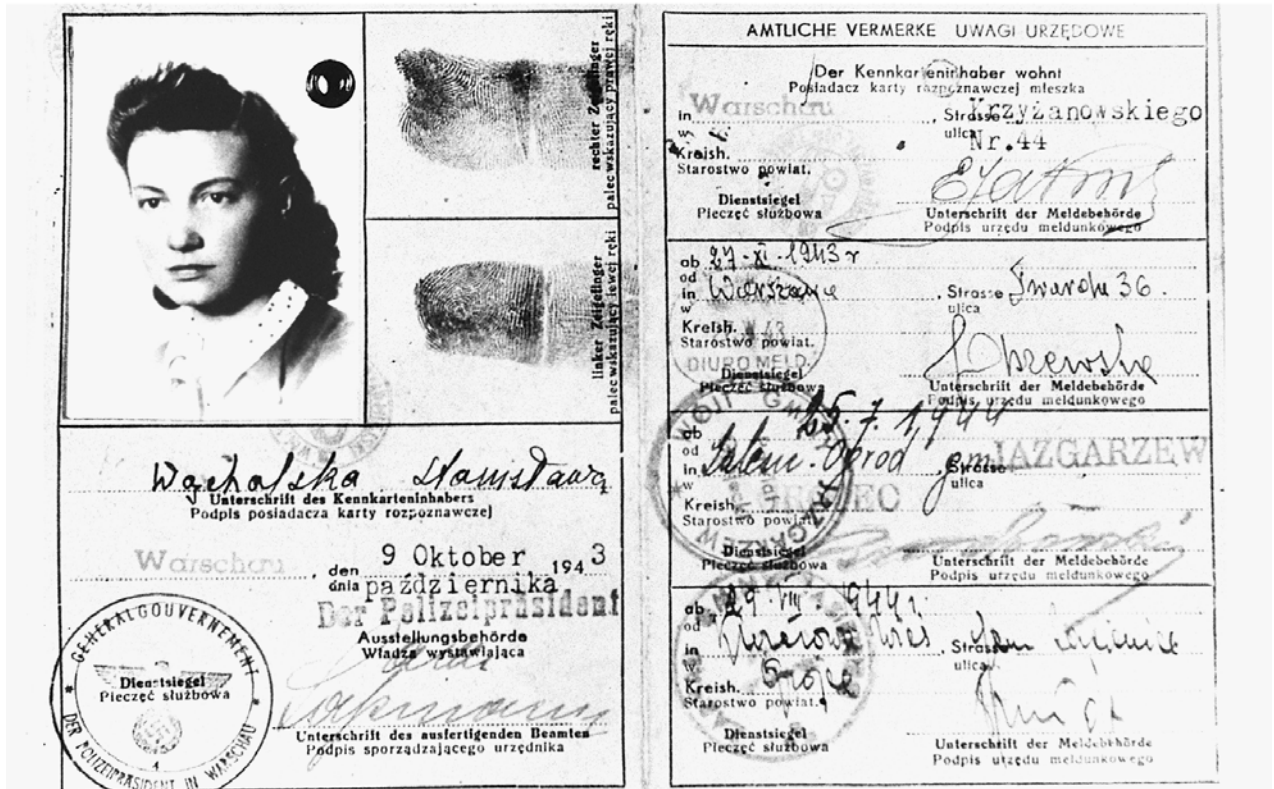 rechter Zeigefinger
palec wskazujący prawej ręki
linker Zeigefinger
palec wskazujący lewej ręki
Wąchalska Stanisława
Unterschrift des Kennkarteninhabers
Podpis posiadacza karty rozpoznawczej
Warschau, den 9 Oktober 1943
dnia października
Der Polizeipräsident
Ausstellungsbehörde
Władza wystawiająca
Dienstsiegel
Pieczęć służbowa
GENERALGOUVERNEMENT
DER POLIZEIPRÄSIDENT IN WARSCHAU
4
Unterschrift des ausfertigenden Beamten
Podpis sporządzającego urzędnika
AMTLICHE VERMERKE UWAGI URZĘDOWE
Der Kennkarteninhaber wohnt
Posiadacz karty rozpoznawczej mieszka
in Warschau, Strasse Krzyżanowskiego
w ulica Nr.44
Kreish.
Starostwo powiat.
Dienstsiegel
Pieczęć służbowa
Unterschrift der Meldebehörde
Podpis urzędu meldunkowego
ab 27-XI-1943 r
od
in Warszawa, Strasse Twarda 36.
w ulica
Kreish.
Starostwo powiat.
BIURO MELD.
Dienstsiegel
Pieczęć służbowa
Unterschrift der Meldebehörde
Podpis urzędu meldunkowego
ab 25.7.1944
od
in gm JAZGARZEW
w Strasse
ulica
Kreish.
Starostwo powiat.
WÓJT GMINY JAZGARZEW
Dienstsiegel
Pieczęć służbowa
Unterschrift der Meldebehörde
Podpis urzędu meldunkowego
ab 29-VIII-944 r.
od
in , Strasse
w ulica
Kreish.
Starostwo powiat.
Dienstsiegel
Pieczęć służbowa
Unterschrift der Meldebehörde
Podpis urzędu meldunkowego